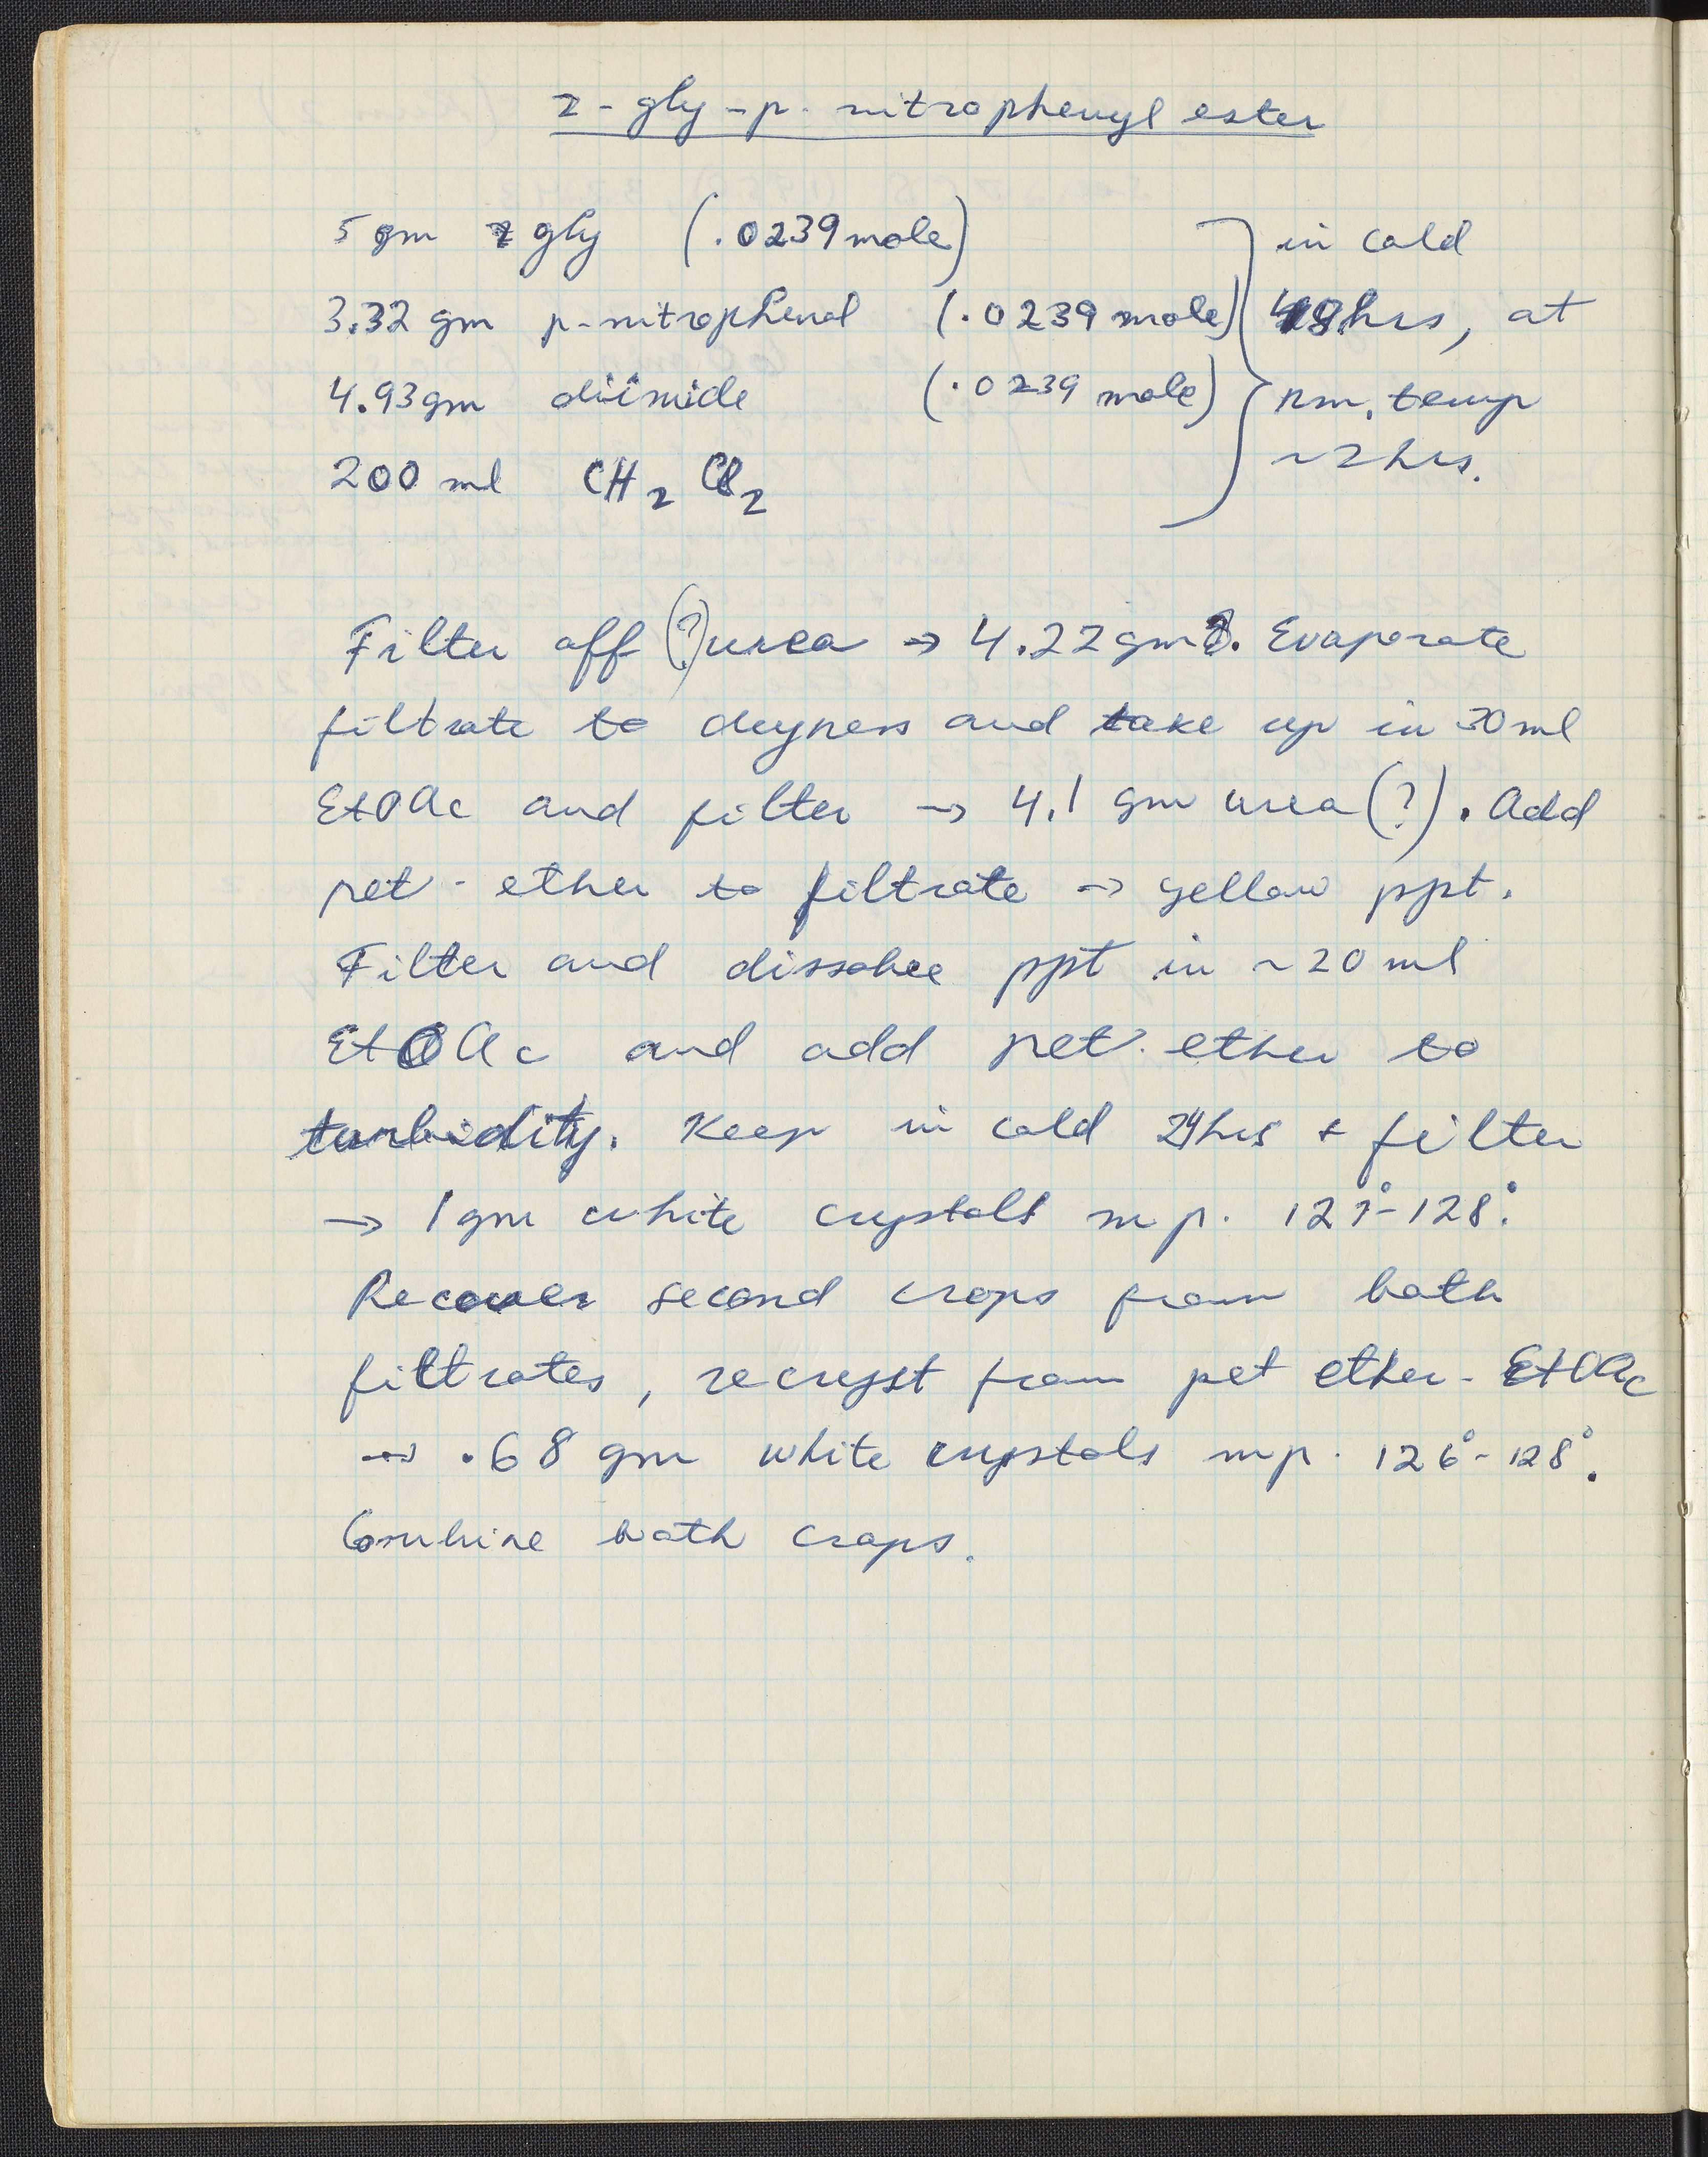 z-gly-p-nitrophenyl ester
5 gm z gly (.0239 mole)
3.32 gm p-nitrophenol (.0239 mole)
4.93 gm diimide (.0239 mole)
200 ml CH2 Cl2
in cold
48 hrs, at
rm. temp
~2 hrs.
Filter off (?) urea → 4.22 gm. Evaporate
filtrate to dryness and take up in 30 ml
EtOAc and filter → 4.1 gm urea (?). Add
pet-ether to filtrate → yellow ppt.
Filter and dissolve ppt in ~20 ml
EtOAc and add pet. ether to
turbidity. Keep in cold 24 hrs + filter
→ 1 gm white crystals mp. 127°-128°.
Recover second crops from both
filtrates, recryst from pet ether-EtOAc
→ .68 gm white crystals mp. 126°-128°.
Combine both crops.